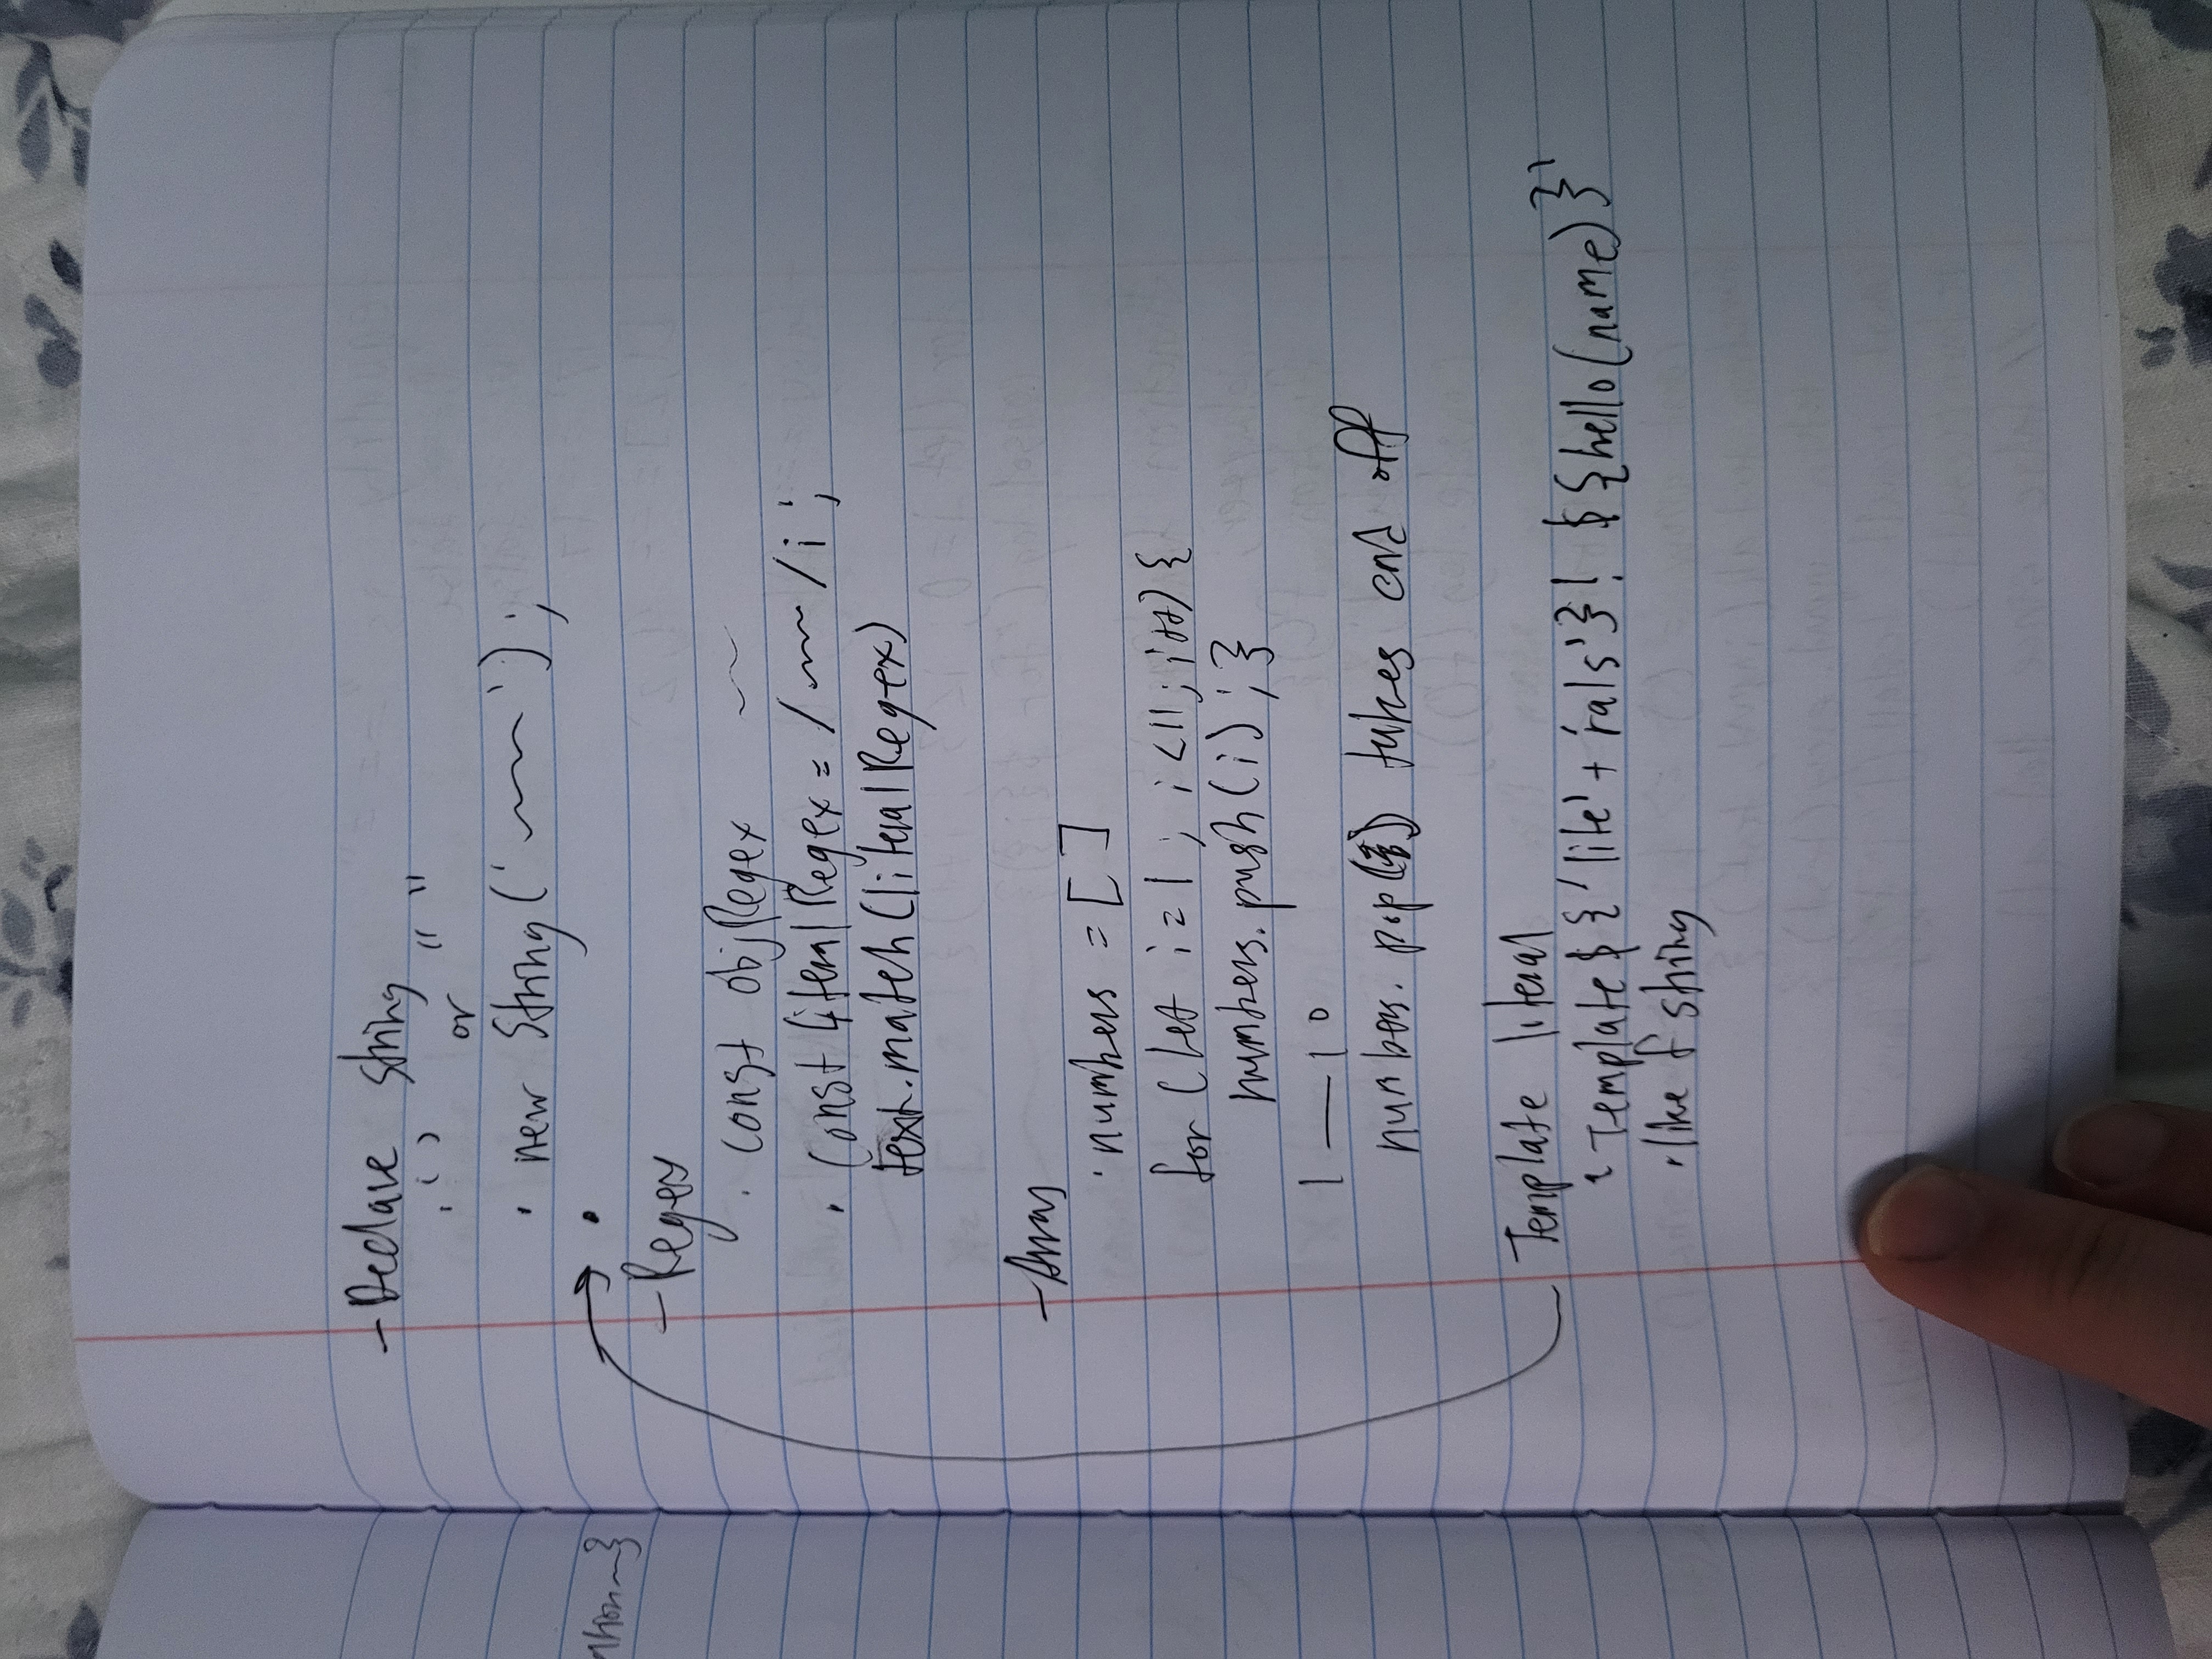 - Declare string
· ' ' or " "
· new String('~~~');
·
- Regex
· const objRegex ~~
· const literalRegex = /~~~/i;
text.match(literalRegex)
- Array
· numbers = []
for (let i=1; i<11; i++) {
numbers.push(i); }
1 — 10
numbers.pop() takes end off
Template literal
' Template ${'lite' + 'rals'}! ${hello(name)}'
· like f string